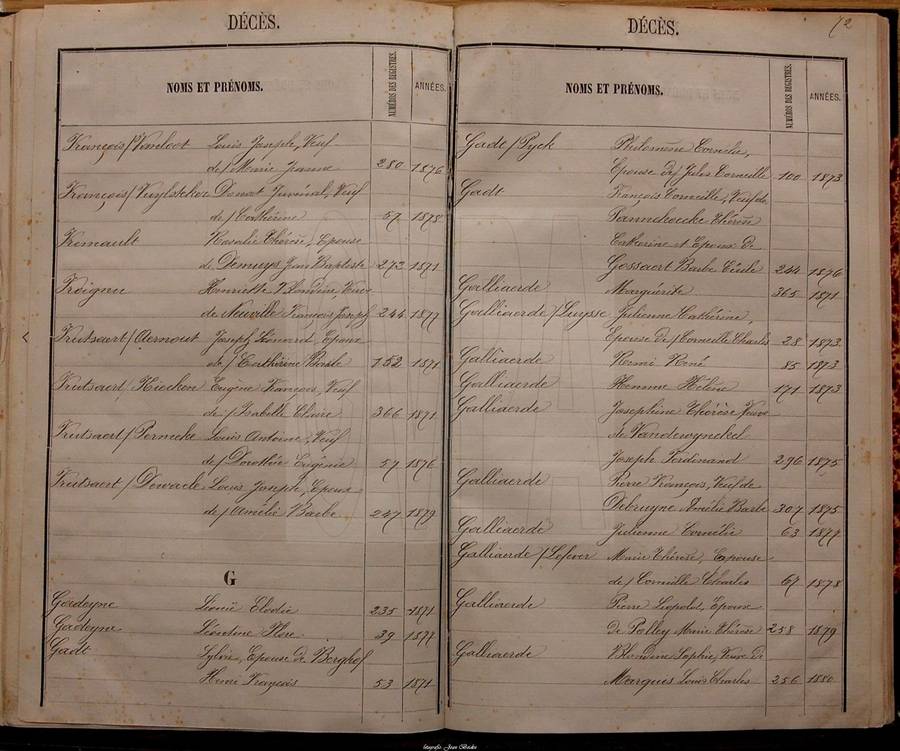 DÉCÈS.
NOMS ET PRÉNOMS. NUMÉROS DES REGISTRES. ANNÉES.
François/Vanloot Louis Joseph, Veuf
de/ Marie Jeanne 280 1876
François/Vuylsteker Donat Juvénal, Veuf
de/ Catherine 57 1878
Rosalie Thérèse, Epouse
de Demuys Jean Baptiste 273 1871
Henriette Blondine, Veuve
de Neuville François Joseph 244 1877
Frutsaert/Aernout Joseph Léonard, Epoux
de/ Catherine Barbe 152 1871
Frutsaert/Kiecken Eugène François, Veuf
de/ Isabelle Claire 366 1871
Frutsaert/Permeke Louis Antoine, Veuf
de/ Dorothée Eugénie 57 1876
Frutsaert/Dewaele Louis Joseph, Epoux
de/ Amélie Barbe 247 1879
G
Gadeyne Léonie Elodie 235 1871
Gadeyne Léontine Flore 39 1877
Gadt Sylvie, Epouse de Berghof
Henri François 53 1871
DÉCÈS. 72
NOMS ET PRÉNOMS. NUMÉROS DES REGISTRES. ANNÉES.
Gadt/Pyck Philomène Cornélie,
Epouse de/ Jules Corneille 100 1873
Gadt François Corneille, Veuf de
Thérèse
Catherine et Epoux de
Gossaert Barbe Cécile 244 1876
Galliaerde Marguérite 365 1871
Galliaerde/Luysse Julienne Cathérine,
Epouse de/ Corneille Charles 28 1873
Galliaerde Remi René 85 1873
Galliaerde Hemme Hélène 171 1873
Galliaerde Josephine Thérèse Veuve
de Vandewynckel
Joseph Ferdinand 296 1875
Galliaerde Pierre François, Veuf de
Debruyne Amélie Barbe 307 1875
Galliaerde Julienne Cornélie 63 1877
Galliaerde/Lefever Marie Thérèse, Epouse
de/ Corneille Charles 67 1878
Galliaerde Pierre Léopold, Epoux
de Polley Marie Thérèse 258 1879
Galliaerde Blondine Sophie, Veuve de
Marquis Louis Charles 256 1880
fotografie Jean Beake